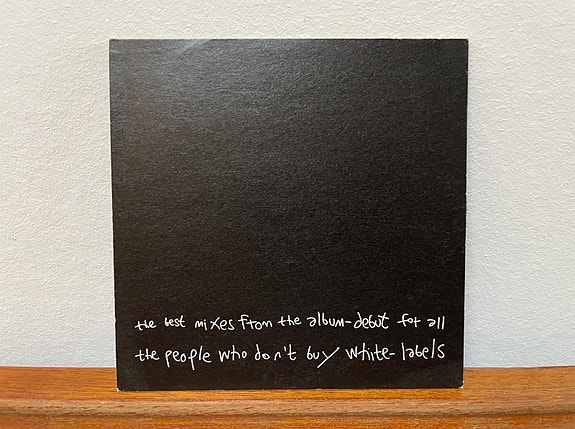 the best mixes from the album-debut for all
the people who don't buy white-labels